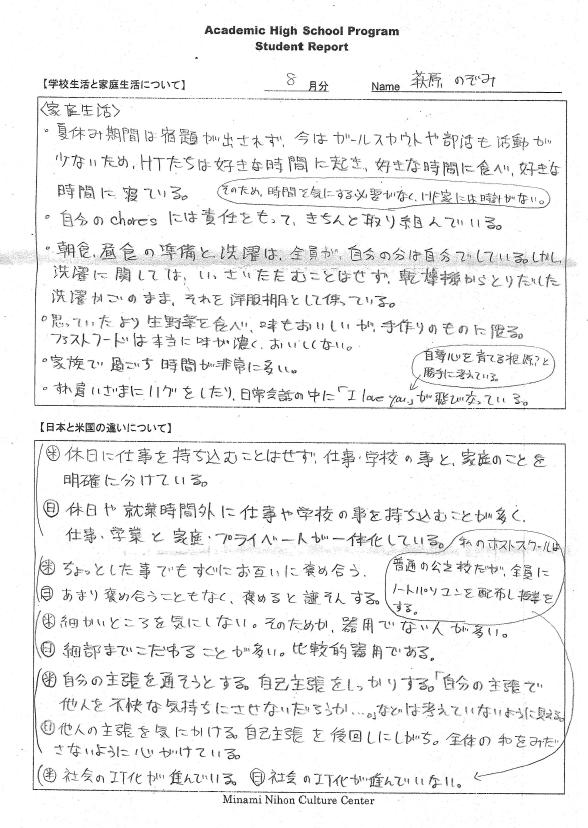 Academic High School Program
Student Report
【学校生活と家庭生活について】 8 月分 Name 萩原 のぞみ
〈家庭生活〉
・夏休み期間は宿題が出されず、今はガールスカウトや部活も活動が
少ないため、HTたちは好きな時間に起き、好きな時間に食べ、好きな
時間に寝ている。
そのため、時間を気にする必要がなく、HF家には時計がない。
・自分のchoresには責任をもって、きちんと取り組んでいる。
・朝食、昼食の準備と、洗濯は、全員が、自分の分は自分でしている。しかし、
洗濯に関しては、いっさいたたむことはせず、乾燥機からとりだした
洗濯かごのまま、それを洋服棚として使っている。
・思っていたより生野菜を食べ、味もおいしいが、手作りのものに限る。
ファストフードは本当に味が濃く、おいしくない。
・家族で過ごす時間が非常に多い。
自尊心を育てる根源?と
勝手に考えている。
・すれ違いざまにハグをしたり、日常会話の中に「I love you」が飛び交っている。
【日本と米国の違いについて】
米 休日に仕事を持ち込むことはせず、仕事・学校の事と、家庭のことを
明確に分けている。
日 休日や就業時間外に仕事や学校の事を持ち込むことが多く、
仕事・学業と家庭・プライベートが一体化している。
私のホストスクールは
普通の公立校だが、全員に
ノートパソコンを配布し授業を
する。
米 ちょっとした事でもすぐにお互いに褒め合う。
日 あまり褒め合うこともなく、褒めると謙そんする。
米 細かいところを気にしない。そのためか、器用でない人が多い。
日 細部までこだわることが多い。比較的器用である。
米 自分の主張を通そうとする。自己主張をしっかりする。「自分の主張で
他人を不快な気持ちにさせないだろうか…。」などは考えていないように見える。
日 他人の主張を気にかける。自己主張を後回しにしがち。全体の和をみだ
さないように心がけている。
米 社会のIT化が進んでいる。 日 社会のIT化が進んでいない。
Minami Nihon Culture Center